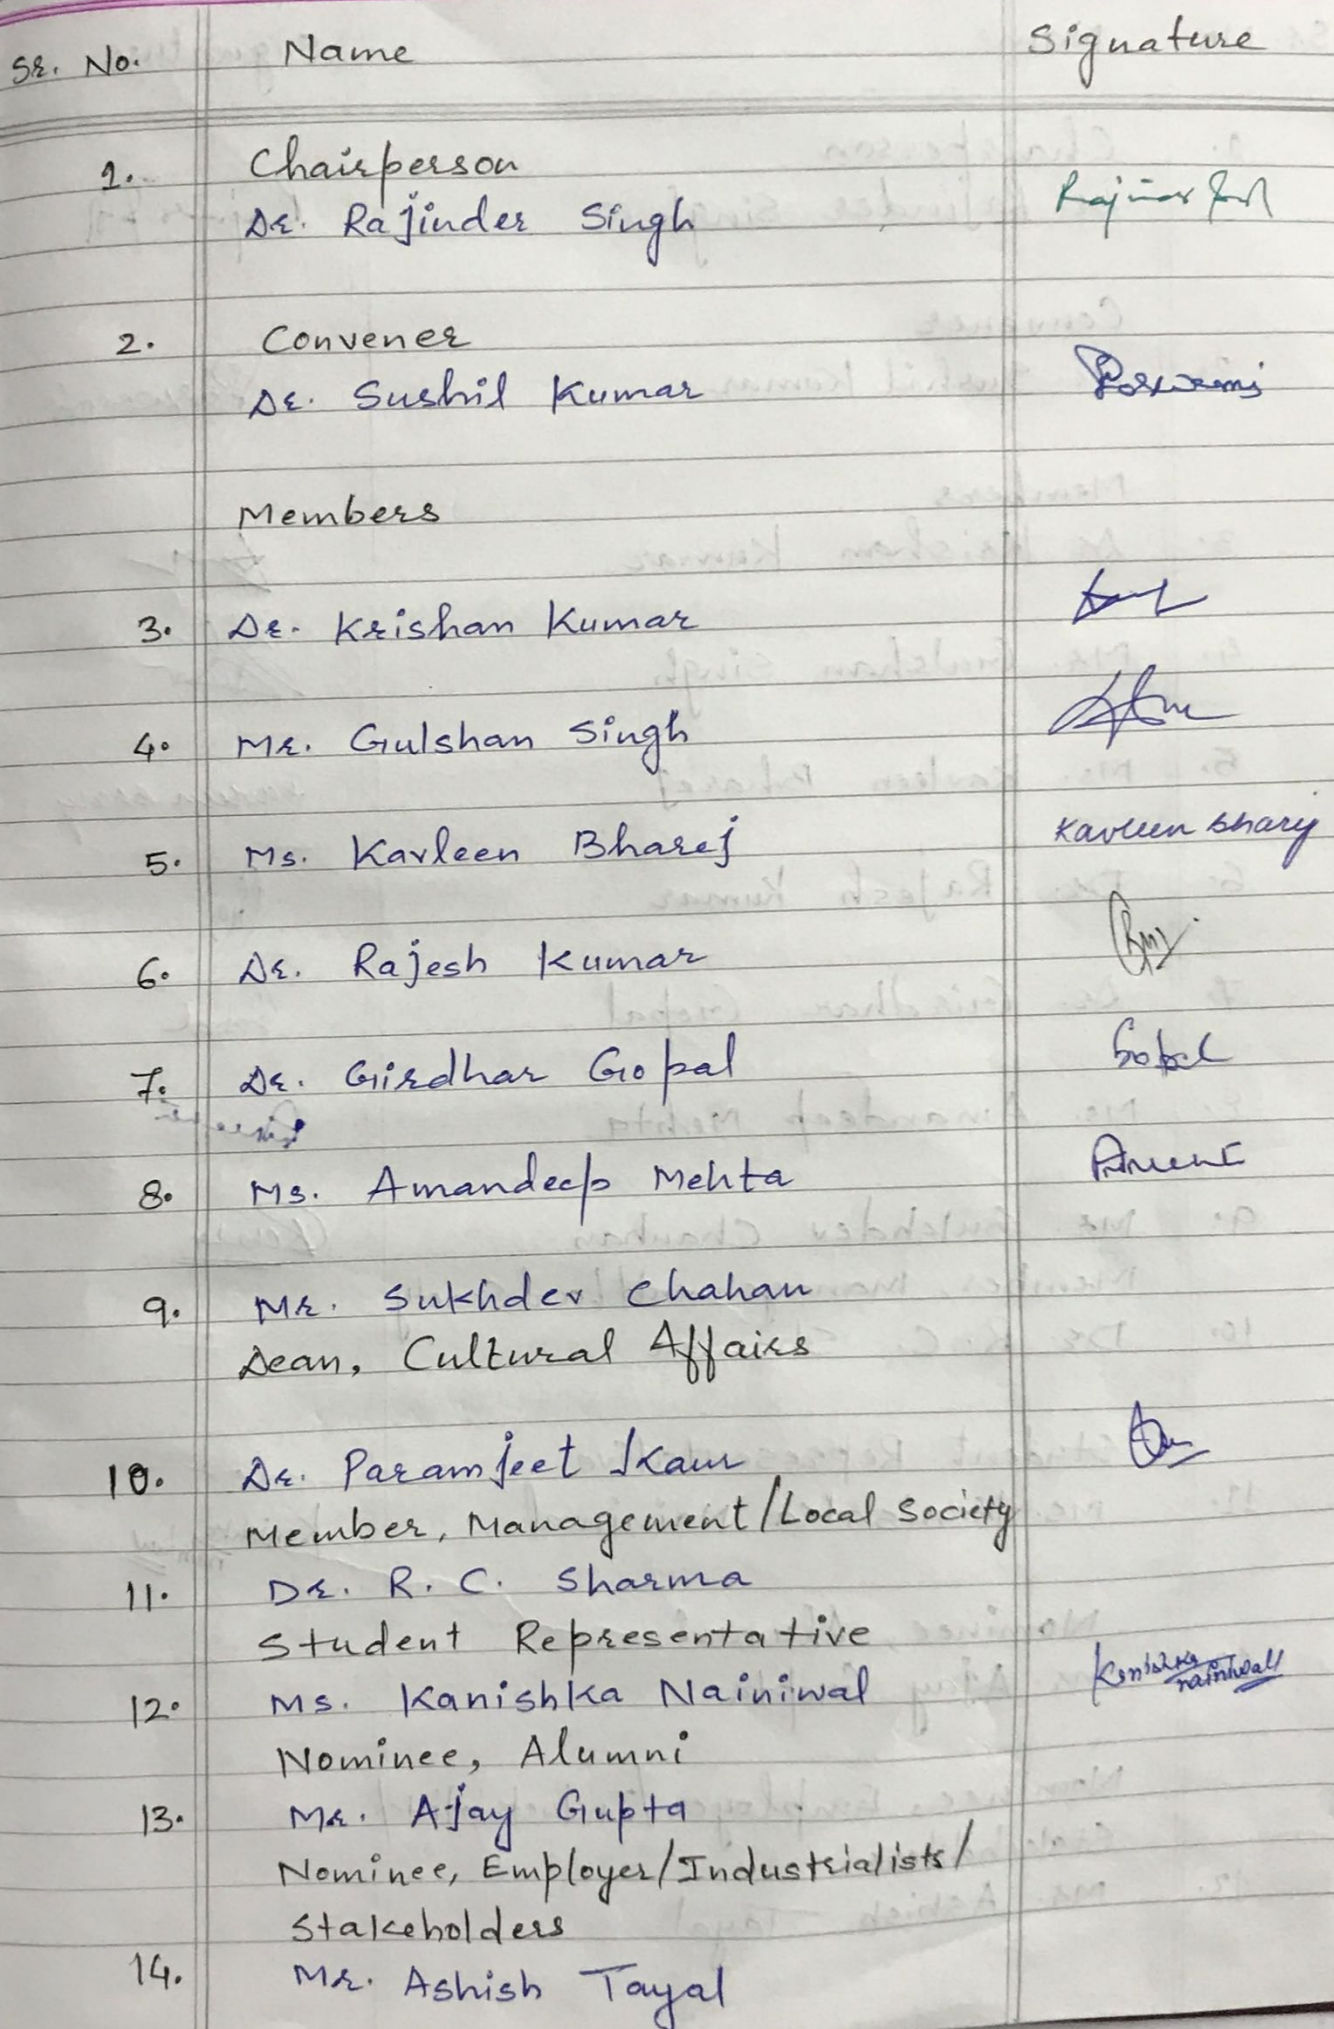 Sr. No. Name Signature
1. Chairperson
Dr. Rajinder Singh
2. Convener
Dr. Sushil Kumar
Members
3. Dr. Krishan Kumar
4. Mr. Gulshan Singh
5. Ms. Kavleen Bharej Kavleen Bharej
6. Dr. Rajesh Kumar
7. Dr. Girdhar Gopal Gopal
8. Ms. Amandeep Mehta
9. Mr. Sukhdev Chahan
Dean, Cultural Affairs
10. Dr. Paramjeet Kaur
Member, Management/Local Society
11. Dr. R. C. Sharma
Student Representative
12. Ms. Kanishka Nainiwal Kanishka Nainiwall
Nominee, Alumni
13. Mr. Ajay Gupta
Nominee, Employer/Industrialists/
Stakeholders
14. Mr. Ashish Tayal